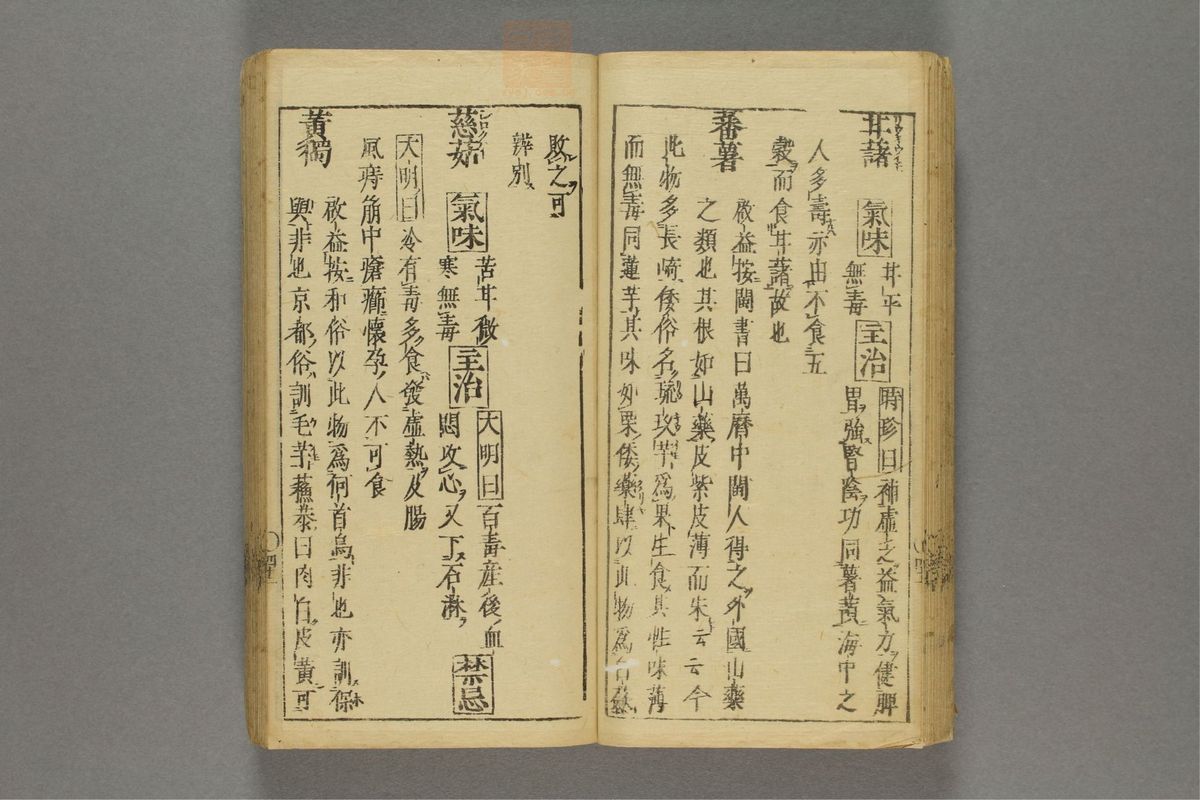 甘藷 氣味 甘平無毒 主治 時珍曰補虚乏益氣力健脾
胃強腎陰功同薯蕷海中之
人多壽亦由不食五
穀而食甘藷故也
蕃薯
啟益按閩書曰萬曆中閩人得之外國山藥
之類也其根如山藥皮紫皮薄而朱云云今
此物多長崎倭俗名琉玖芋為果生食其性味薄
而無毒同蓮芋其味如栗倭藥肆以此物為白
敗之可
辨別
慈茹 氣味 苦甘微寒無毒 主治 大明曰百毒産後血
悶攻心又下石淋 禁忌
大明曰冷有毒多食發虚熱及腸
風痔崩中瘡癤懷孕人不可食
黃獨
啟益按和俗以此物為何首烏非也亦訓保
與非也京都俗訓毛芋蘓恭曰肉白皮黃可